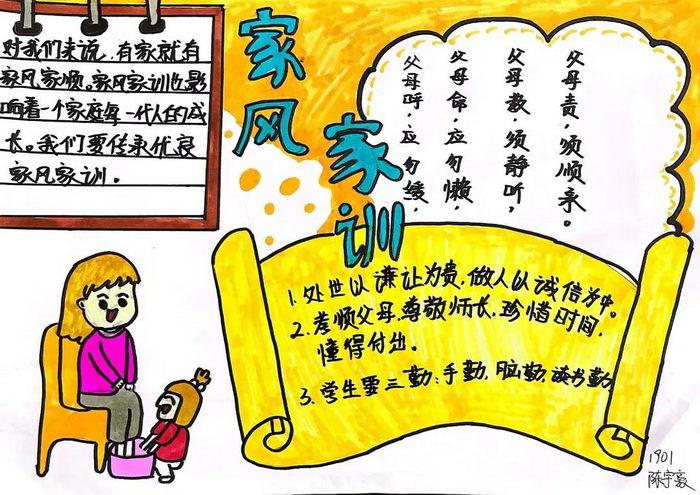 对我们来说,有家就有
家风家顺。家风家训也影
响着一个家庭每一代人的成
长。我们要传承优良
家风家训。
家风
家训
父母呼,应勿缓,
父母命,应勿懒,
父母教,须静听,
父母责,须顺承。
1.处世以谦让为贵,做人以诚信为中。
2.孝顺父母,尊敬师长,珍惜时间,
懂得付出。
3.学生要三勤:手勤,脑勤,读书勤
1901
陈宇豪